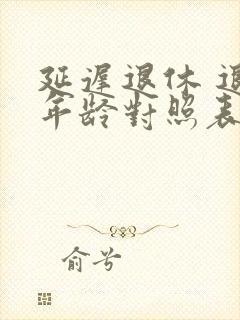 延遲退休 退
年龄對照表
俞兮